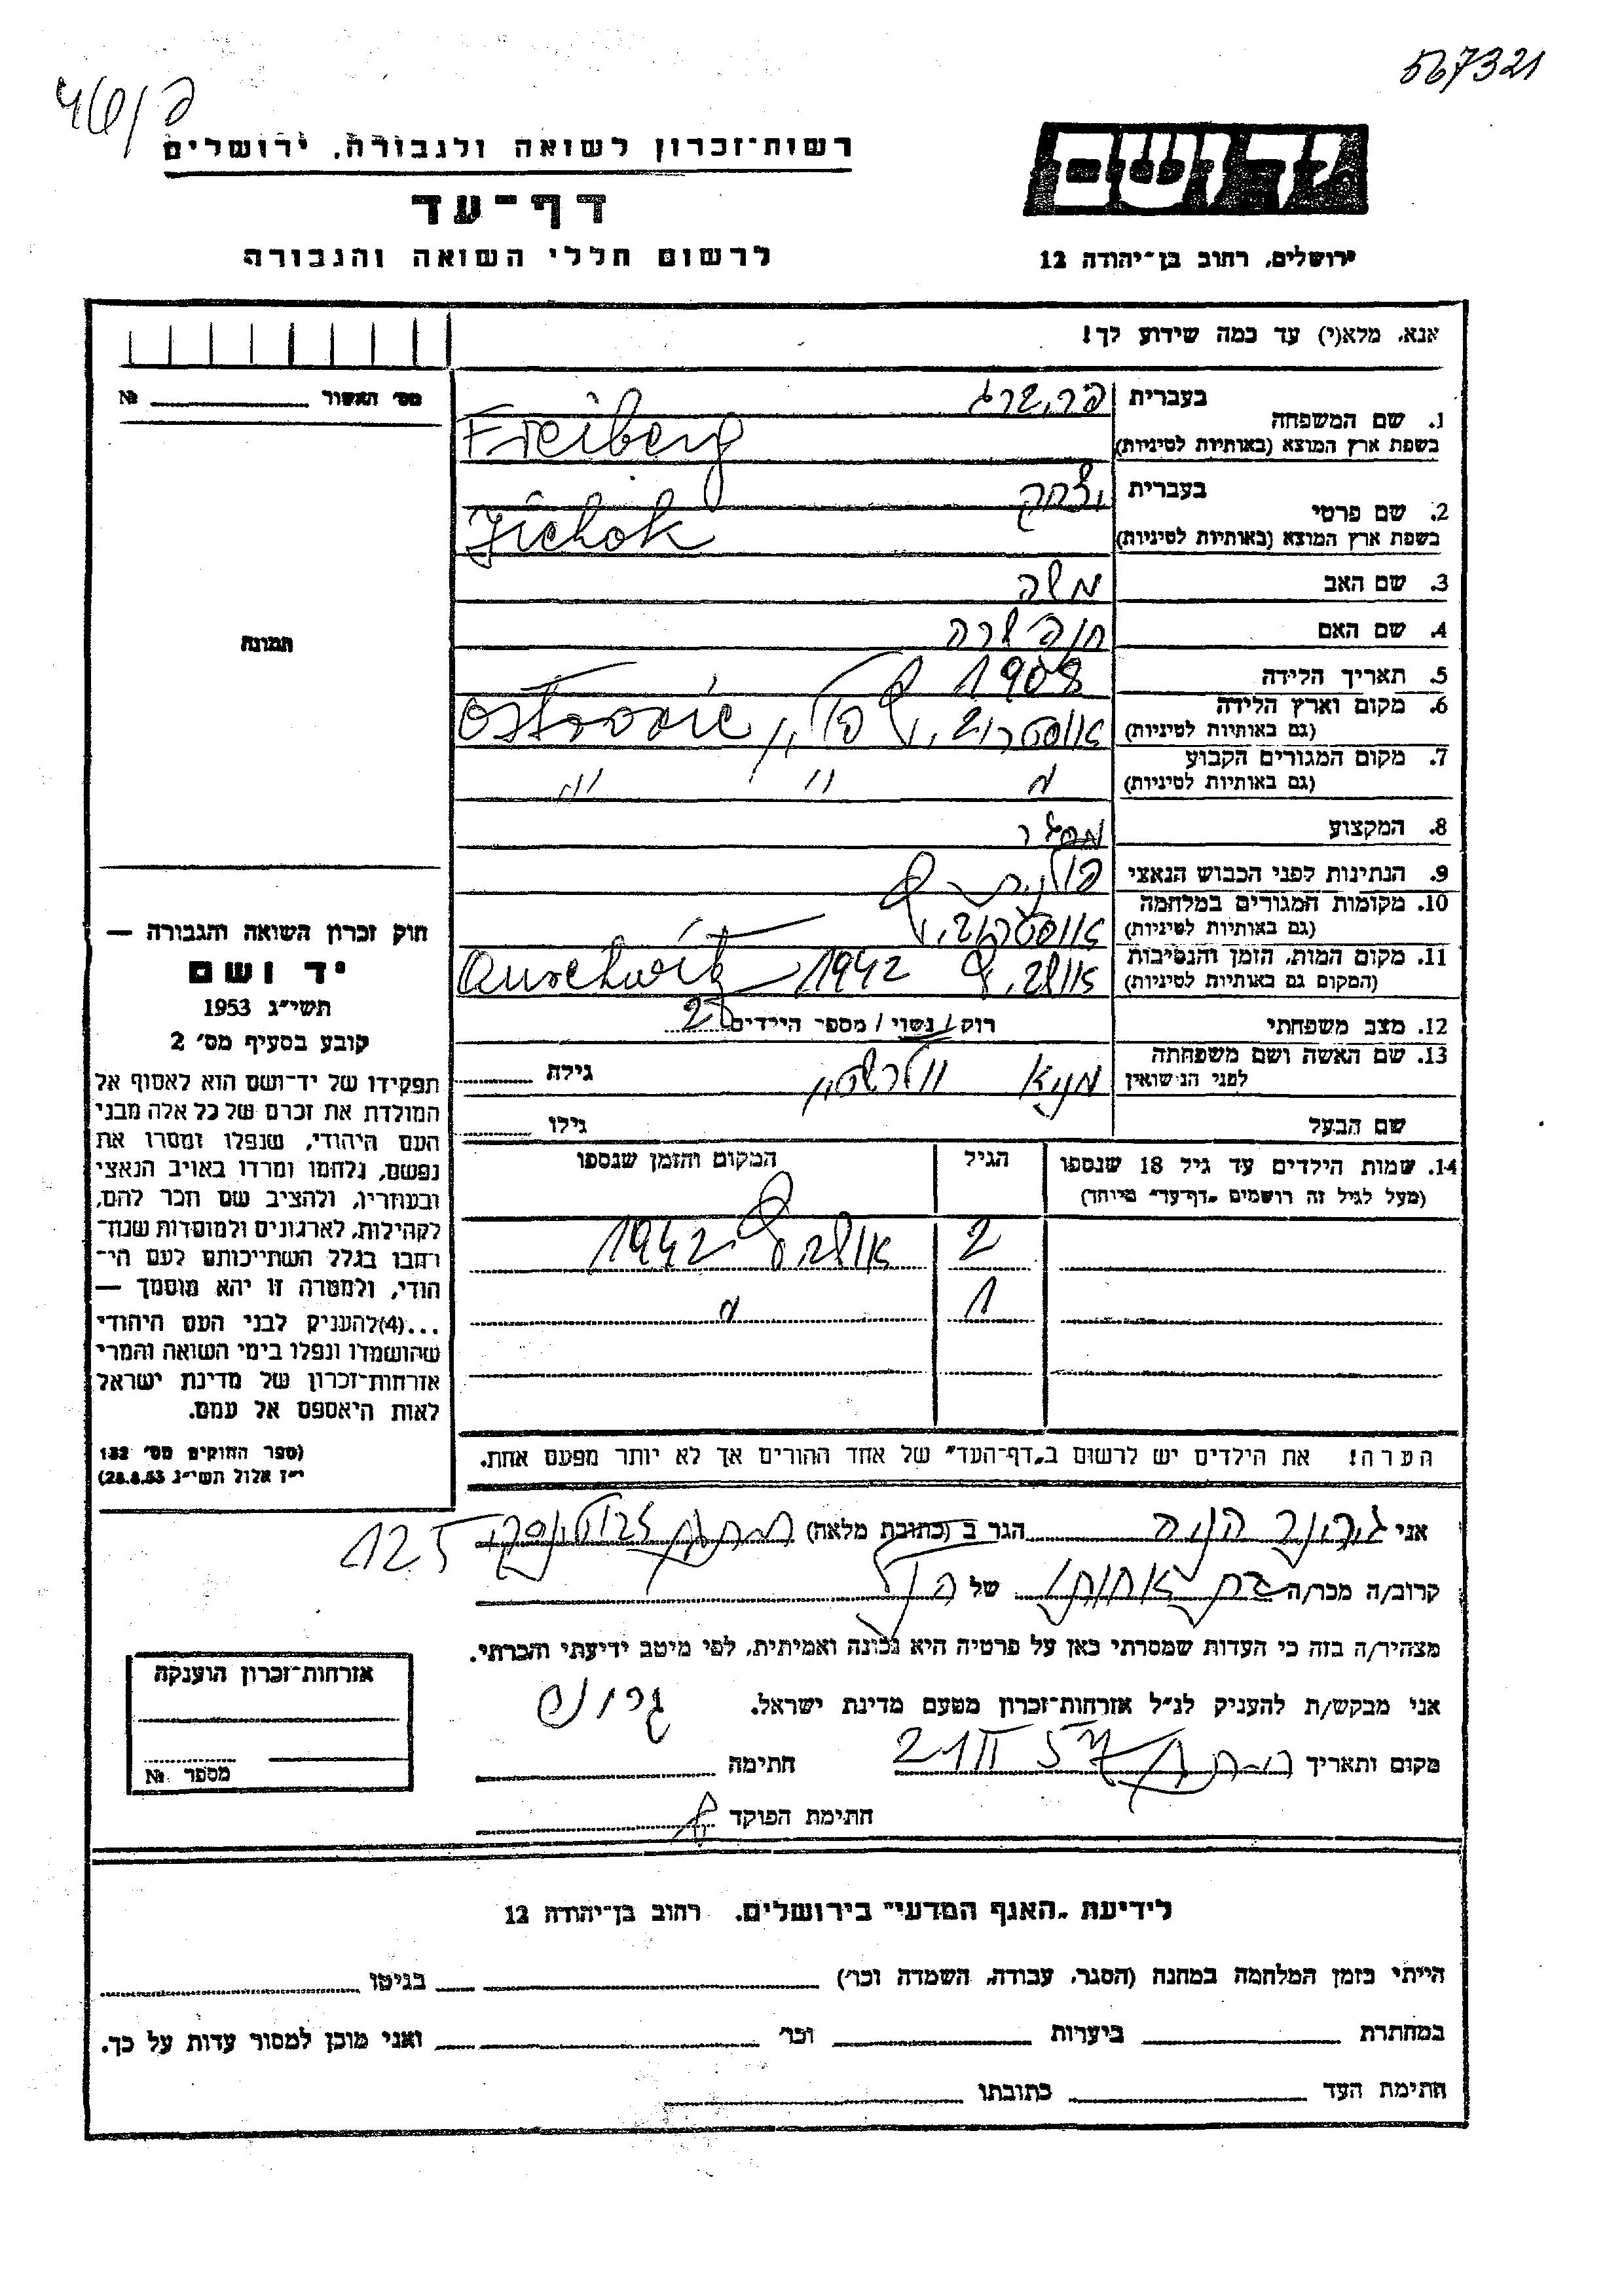 567321
רשות־זכרון לשואה ולגבורה, ירושלים
דף־עד
לרשום חללי השואה והגבורה
יד ושם
ירושלים, רחוב בן־יהודה 12
אנא, מלא(י) עד כמה שידוע לך!
מס׳ האשור № 
תמונה
1. שם המשפחה
בעברית פרייברג
בשפת ארץ המוצא (באותיות לטיניות) Freiberg
2. שם פרטי
בעברית יצחק
בשפת ארץ המוצא (באותיות לטיניות) Jichok
3. שם האב משה
4. שם האם חנה שרה
5. תאריך הלידה 1908
6. מקום וארץ הלידה
(גם באותיות לטיניות) אוסטרובייץ פולין Ostrowiec
7. מקום המגורים הקבוע
(גם באותיות לטיניות) " " "
8. המקצוע
9. הנתינות לפני הכבוש הנאצי פולנית
10. מקומות המגורים במלחמה
(גם באותיות לטיניות) אוסטרובייץ
11. מקום המות, הזמן והנסיבות
(המקום גם באותיות לטיניות) אושביץ 1942 Auschwitz
12. מצב משפחתי רוק / נשוי / מספר הילדים 2
13. שם האשה ושם משפחתה
לפני הנישואין גילה
שם הבעל גילו
14. שמות הילדים עד גיל 18 שנספו הגיל המקום והזמן שנספו
(מעל לגיל זה רושמים „דף־עד״ מיוחד)
2 אושביץ 1942
1 "
הערה! את הילדים יש לרשום ב„דף־העד״ של אחד ההורים אך לא יותר מפעם אחת.
חוק זכרון השואה והגבורה —
יד ושם
תשי״ג 1953
קובע בסעיף מס׳ 2
תפקידו של יד־ושם הוא לאסוף אל
המולדת את זכרם של כל אלה מבני
העם היהודי, שנפלו ומסרו את
נפשם, נלחמו ומרדו באויב הנאצי
ובעוזריו, ולהציב שם וזכר להם,
לקהילות, לארגונים ולמוסדות שנח־
רבו בגלל השתייכותם לעם הי־
הודי, ולמטרה זו יהא מוסמך —
...(4) להעניק לבני העם היהודי
שהושמדו ונפלו בימי השואה והמרי
אזרחות־זכרון של מדינת ישראל
לאות היאספם אל עמם.
(ספר החוקים מס׳ 132
י״ז אלול תשי״ג 28.8.53)
אני חנה הגר ב (כתובת מלאה) 125
קרוב/ה מכר/ה בת אחותו של הנ״ל
מצהיר/ה בזה כי העדות שמסרתי כאן על פרטיה היא נכונה ואמיתית, לפי מיטב ידיעתי והכרתי.
אני מבקש/ת להעניק לנ״ל אזרחות־זכרון מטעם מדינת ישראל.
מקום ותאריך 21 II 57 חתימה
חתימת הפוקד
אזרחות־זכרון הוענקה
מספר №
לידיעת „האגף המדעי״ בירושלים, רחוב בן־יהודה 12
הייתי בזמן המלחמה במחנה (הסגר, עבודה, השמדה וכו׳) בגיטו
במחתרת ביערות וכו׳ ואני מוכן למסור עדות על כך.
חתימת העד כתובתו